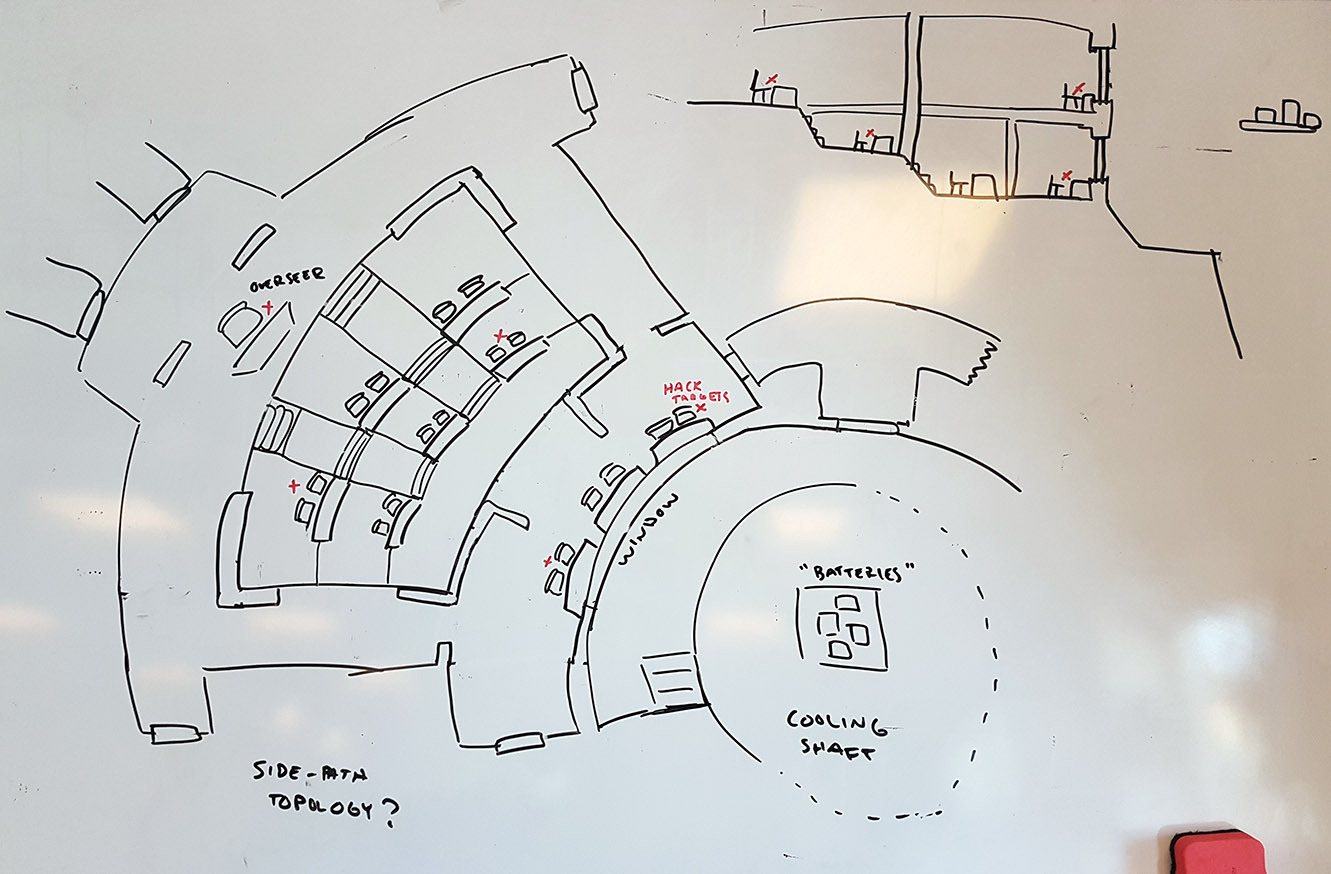 OVERSEER
HACK
TARGETS
WINDOW
"BATTERIES"
COOLING
SHAFT
SIDE-PATH
TOPOLOGY?